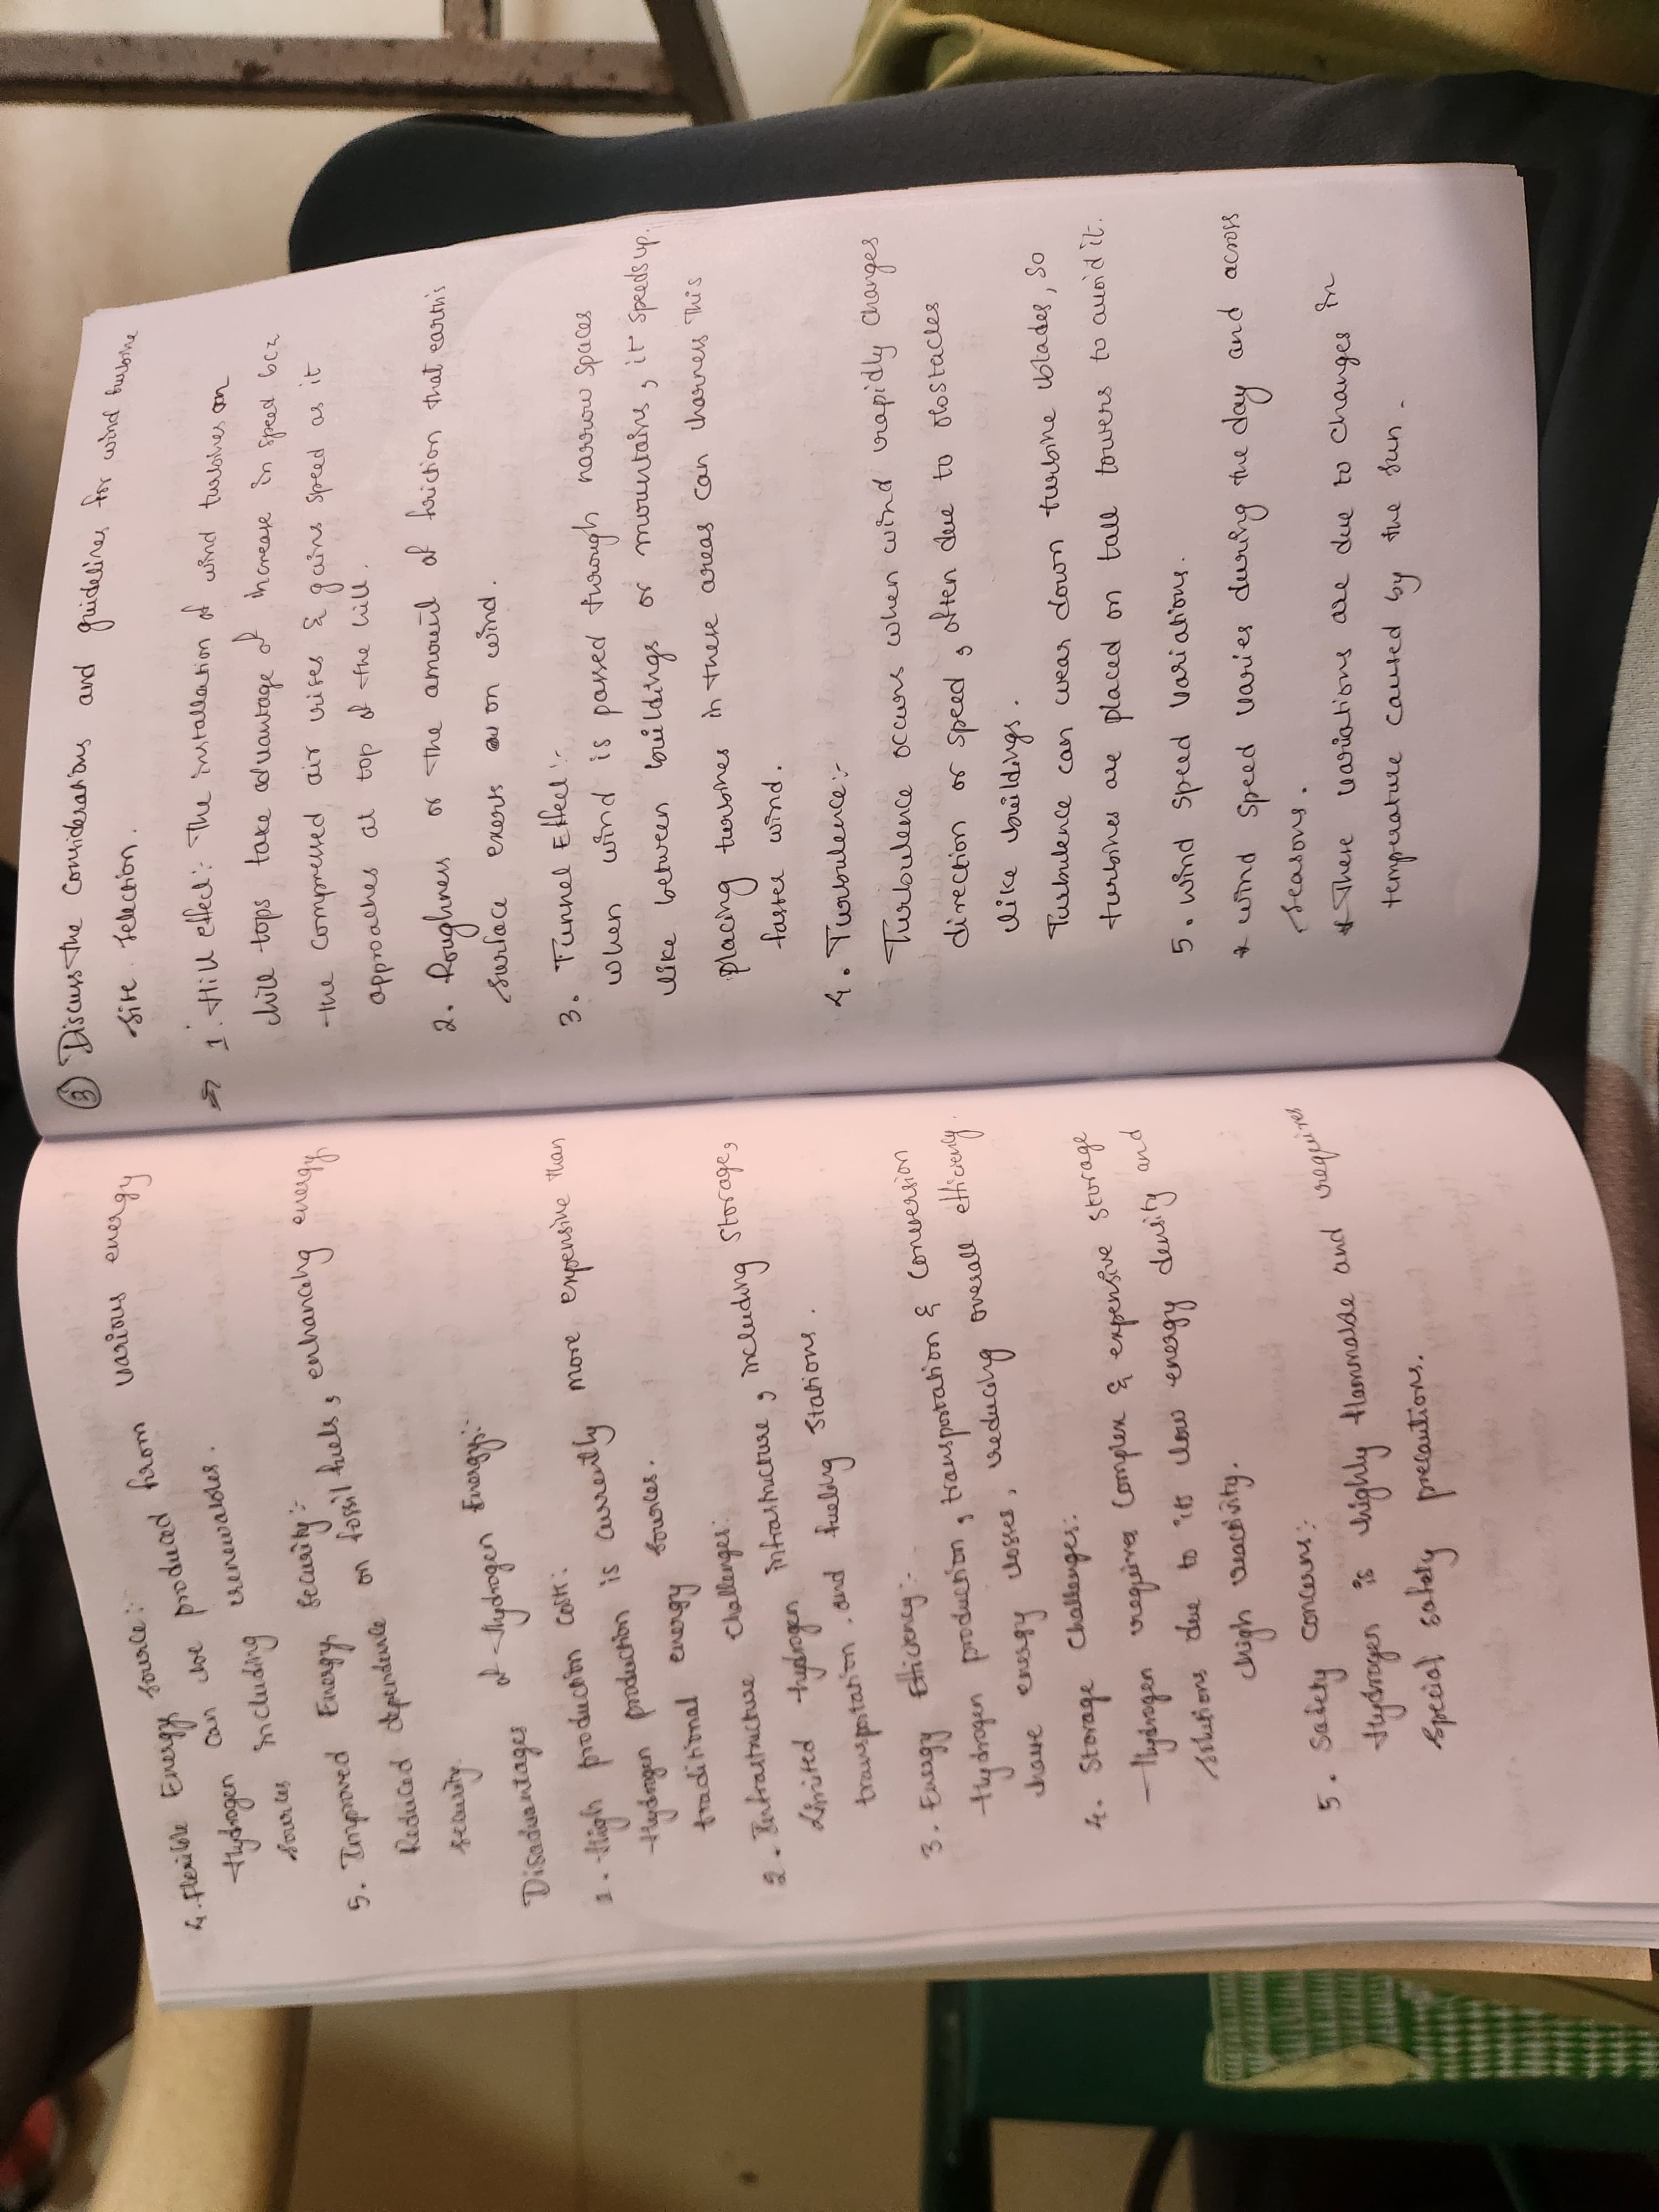 4. Flexible Energy source:-
Hydrogen can be produced from various energy
sources including renewables.
5. Improved Energy security:-
Reduced dependence on fossil fuels, enhancing energy
security.
Disadvantages of Hydrogen Energy:-
1. High production cost:
Hydrogen production is currently more expensive than
traditional energy sources.
2. Infrastructure Challenges:
Limited hydrogen infrastructure, including storage,
transportation and fueling stations.
3. Energy Efficiency:-
Hydrogen production, transportation & conversion
have energy losses, reducing overall efficiency.
4. Storage Challenges:
Hydrogen requires complex & expensive storage
solutions due to its low energy density and
high reactivity.
5. Safety Concerns:-
Hydrogen is highly flammable and requires
special safety precautions.
③ Discuss the considerations and guidelines for wind turbine
site selection.
⇒ 1. Hill effect:- The installation of wind turbines on
hill tops take advantage of increase in speed bcz
the compressed air rises & gains speed as it
approaches at top of the hill.
2. Roughness or the amount of friction that earth's
surface exerts on wind.
3. Tunnel Effect:-
when wind is passed through narrow spaces
like between buildings or mountains, it speeds up.
placing turbines in these areas can harness this
faster wind.
4. Turbulence:-
Turbulence occurs when wind rapidly changes
direction or speed, often due to obstacles
like buildings.
Turbulence can wear down turbine blades, so
turbines are placed on tall towers to avoid it.
5. wind speed variations.
* wind speed varies during the day and across
seasons.
* These variations are due to changes in
temperature caused by the sun.